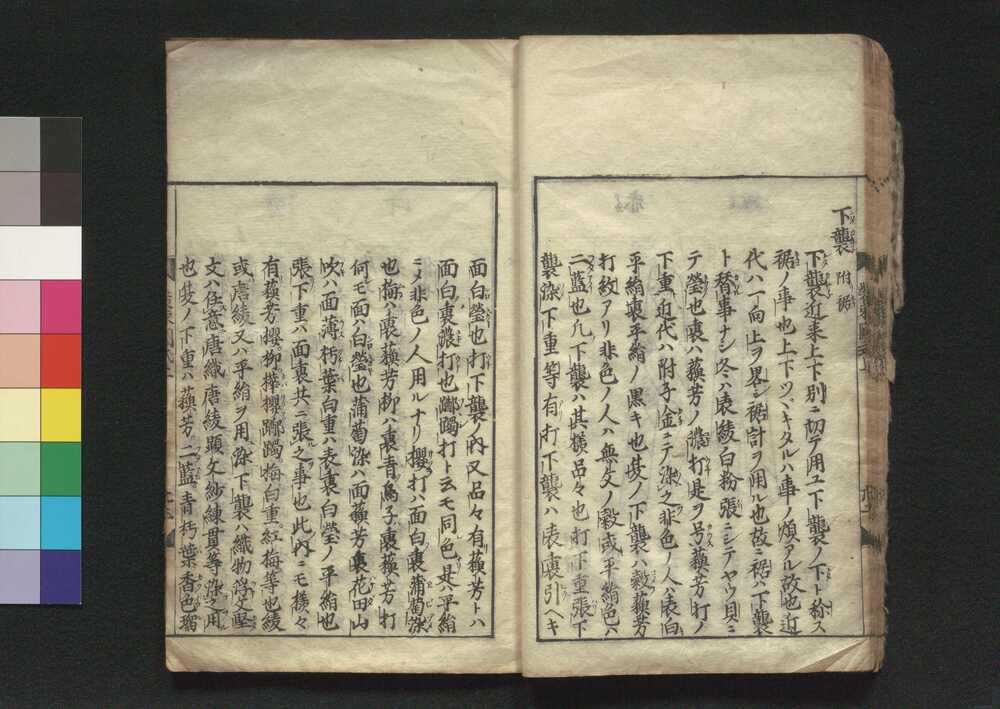 下襲 附裾
下襲近来上下別ニ切テ用ユ下襲ノ下ト称ス
裾ノ事也上下ツヾキタルハ事ノ煩アル故也近
代ハ一向上ヲ畧シ裾計ヲ用ル也故ニ裾ハ下襲
ト替事ナシ冬ハ表綾白粉張ニシテヤウ貝ニ
テ瑩也裏ハ蘓芳ノ濃打是ヲ号蘓芳打ノ
下重近代ハ附子金ニテ染ク非色ノ人ハ表白
平絹裏平絹ノ黒キ也夏ノ下襲ハ縠蘓芳
打紋アリ非色ノ人ハ無文ノ縠或平絹色ハ
二藍也凡下襲ハ其様品々也打下重張下
襲染下重等有打下襲ハ表裏引ヘキ
面白瑩也打下襲ノ内又品々有蘓芳トハ
面白裏濃打也躑躅打ト云モ同色是ハ平絹
ニメ非色ノ人用ルナリ櫻打ハ面白裏蒲萄染
也梅ハ裏蘓芳柳ハ裏青鳥子裏蘓芳打
何モ面ハ白瑩也蒲萄染ハ面蘓芳裏花田山
吹ハ面薄朽葉白重ハ表裏白瑩ノ平絹也
張下重ハ面裏共ニ張之事也此内ニモ様々
有蘓芳櫻柳樺櫻躑躅梅白重紅梅等也綾
或唐綾又ハ平絹ヲ用染下襲ハ織物浮文堅
文ハ任意唐織唐綾顕文紗練貫等染之用
也夏ノ下重ハ蘓芳二藍青朽葉香色瑠